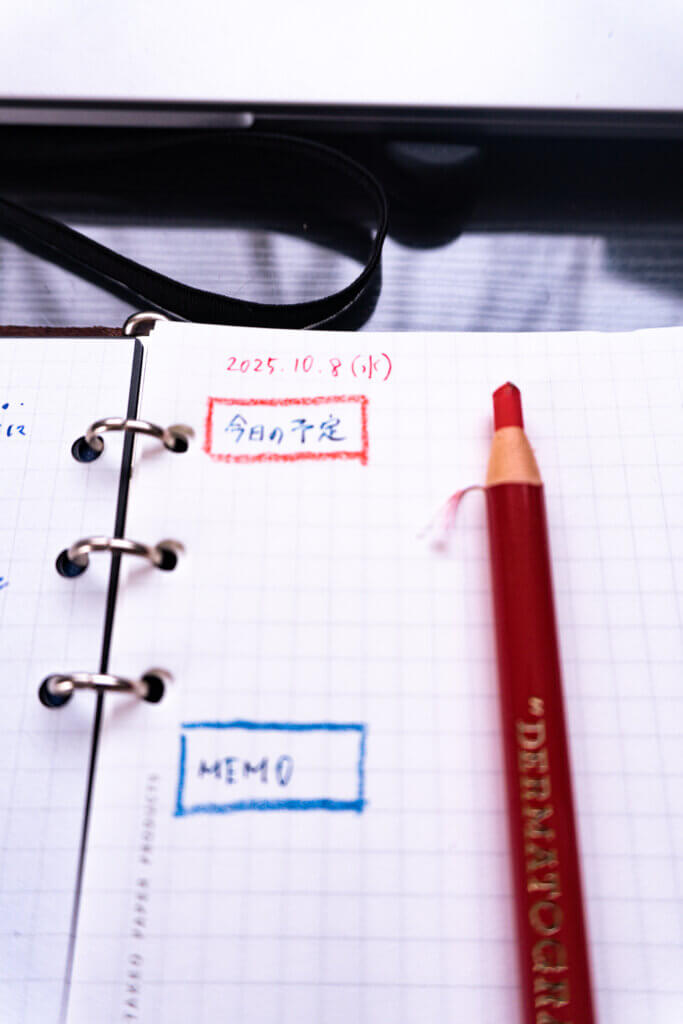 2025.10.8(水)
今日の予定
MEMO
TAKEO PAPER PRODUCTS
"DERMATOGR